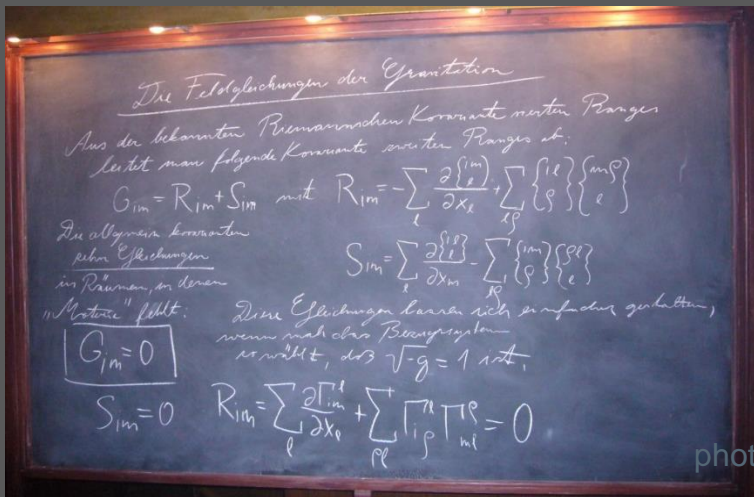 Die Feldgleichungen der Gravitation
Aus der bekannten Riemannschen Kovariante vierten Ranges
leitet man folgende Kovariante zweiten Ranges ab:
G_{im} = R_{im} + S_{im} mit R_{im} = -∑_l ∂{im l}/∂x_l + ∑_{lρ} {il ρ}{mρ l}
Die allgemein kovarianten
zehn Gleichungen
in Räumen, in denen
"Materie" fehlt:
G_{im} = 0
S_{im} = 0
S_{im} = ∑_l ∂{il l}/∂x_m - ∑_{lρ} {im ρ}{ρl l}
Diese Gleichungen lassen sich einfacher gestalten,
wenn man das Bezugssystem
so wählt, daß √-g = 1 ist.
R_{im} = ∑_l ∂Γ_{im}^l/∂x_l + ∑_{ρl} Γ_{iρ}^l Γ_{ml}^ρ = 0
phot